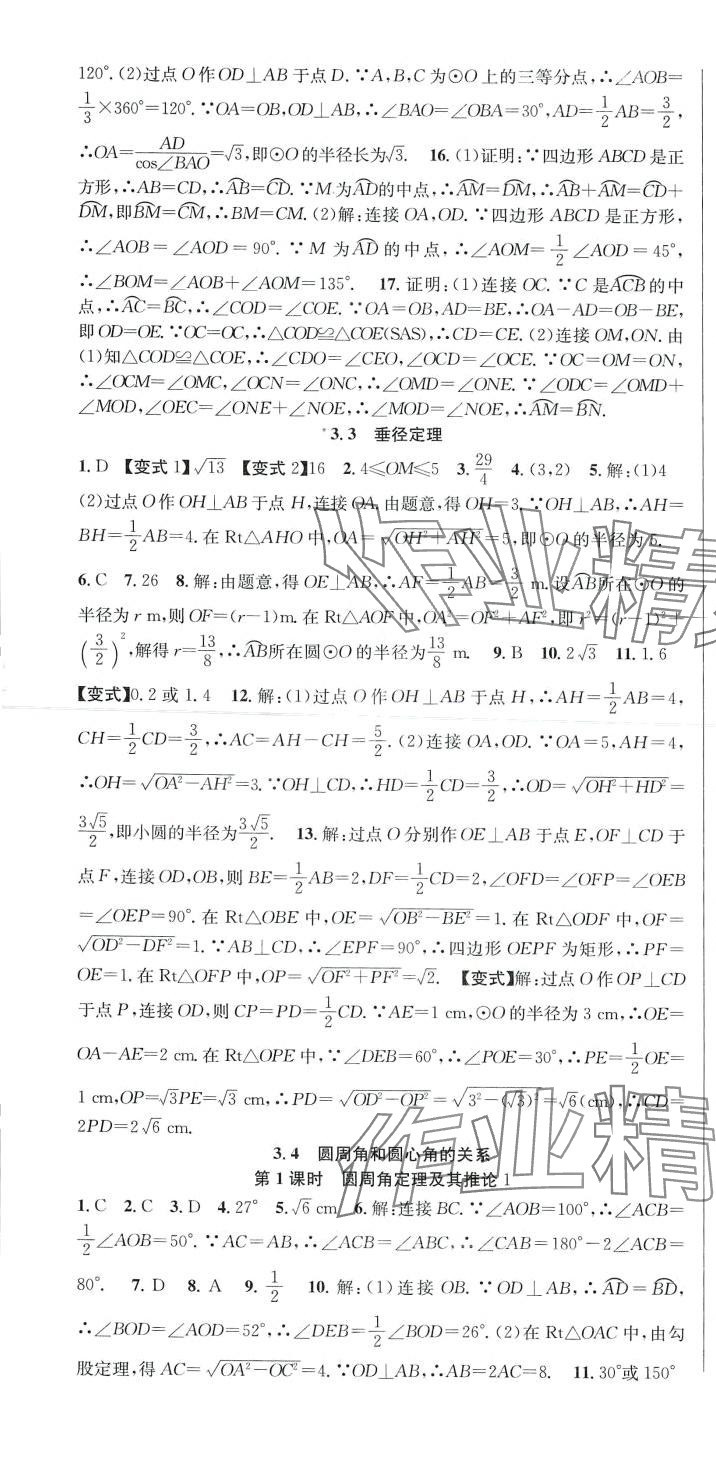 120°. (2)过点O作OD⊥AB于点D. ∵A,B,C为⊙O上的三等分点,∴∠AOB=
1/3×360°=120°. ∵OA=OB,OD⊥AB,∴∠BAO=∠OBA=30°,AD=1/2AB=3/2,
∴OA=AD/cos∠BAO=√3,即⊙O的半径长为√3. 16. (1)证明:∵四边形ABCD是正
方形,∴AB=CD,∴⌒AB=⌒CD. ∵M为⌒AD的中点,∴⌒AM=⌒DM,∴⌒AB+⌒AM=⌒CD+
⌒DM,即⌒BM=⌒CM,∴BM=CM. (2)解:连接OA,OD. ∵四边形ABCD是正方形,
∴∠AOB=∠AOD=90°. ∵M为⌒AD的中点,∴∠AOM=1/2∠AOD=45°,
∴∠BOM=∠AOB+∠AOM=135°. 17. 证明:(1)连接OC. ∵C是⌒ACB的中
点,∴⌒AC=⌒BC,∴∠COD=∠COE. ∵OA=OB,AD=BE,∴OA-AD=OB-BE,
即OD=OE. ∵OC=OC,∴△COD≌△COE(SAS),∴CD=CE. (2)连接OM,ON. 由
(1)知△COD≌△COE,∴∠CDO=∠CEO,∠OCD=∠OCE. ∵OC=OM=ON,
∴∠OCM=∠OMC,∠OCN=∠ONC,∴∠OMD=∠ONE. ∵∠ODC=∠OMD+
∠MOD,∠OEC=∠ONE+∠NOE,∴∠MOD=∠NOE,∴⌒AM=⌒BN.
3.3 垂径定理
1. D 【变式1】√13 【变式2】16 2. 4≤OM≤5 3. 29/4 4. (3,2) 5. 解:(1)4
(2)过点O作OH⊥AB于点H,连接OA. 由题意,得OH=3. ∵OH⊥AB,∴AH=
BH=1/2AB=4. 在Rt△AHO中,OA=√(OH²+AH²)=5,即⊙O的半径为5.
6. C 7. 26 8. 解:由题意,得OE⊥AB,∴AF=1/2AB=3/2 m. 设⌒AB所在⊙O的
半径为r m,则OF=(r-1)m. 在Rt△AOF中,OA²=OF²+AF²,即r²=(r-1)²+
(3/2)²,解得r=13/8,∴⌒AB所在圆⊙O的半径为13/8 m. 9. B 10. 2√3 11. 1.6
【变式】0.2或1.4 12. 解:(1)过点O作OH⊥AB于点H,∴AH=1/2AB=4,
CH=1/2CD=3/2,∴AC=AH-CH=5/2. (2)连接OA,OD. ∵OA=5,AH=4,
∴OH=√(OA²-AH²)=3. ∵OH⊥CD,∴HD=1/2CD=3/2,∴OD=√(OH²+HD²)=
3√5/2,即小圆的半径为3√5/2. 13. 解:过点O分别作OE⊥AB于点E,OF⊥CD于
点F,连接OD,OB,则BE=1/2AB=2,DF=1/2CD=2,∠OFD=∠OFP=∠OEB
=∠OEP=90°. 在Rt△OBE中,OE=√(OB²-BE²)=1. 在Rt△ODF中,OF=
√(OD²-DF²)=1. ∵AB⊥CD,∴∠EPF=90°,∴四边形OEPF为矩形,∴PF=
OE=1. 在Rt△OFP中,OP=√(OF²+PF²)=√2. 【变式】解:过点O作OP⊥CD
于点P,连接OD,则CP=PD=1/2CD. ∵AE=1 cm,⊙O的半径为3 cm,∴OE=
OA-AE=2 cm. 在Rt△OPE中,∵∠DEB=60°,∴∠POE=30°,∴PE=1/2OE=
1 cm,OP=√3PE=√3 cm,∴PD=√(OD²-OP²)=√(3²-(√3)²)=√6(cm),∴CD=
2PD=2√6 cm.
3.4 圆周角和圆心角的关系
第1课时 圆周角定理及其推论1
1. C 2. C 3. D 4. 27° 5. √6 cm 6. 解:连接BC. ∵∠AOB=100°,∴∠ACB=
1/2∠AOB=50°. ∵AC=AB,∴∠ACB=∠ABC,∴∠CAB=180°-2∠ACB=
80°. 7. D 8. A 9. 1/2 10. 解:(1)连接OB. ∵OD⊥AB,∴⌒AD=⌒BD,
∴∠BOD=∠AOD=52°,∴∠DEB=1/2∠BOD=26°. (2)在Rt△OAC中,由勾
股定理,得AC=√(OA²-OC²)=4. ∵OD⊥AB,∴AB=2AC=8. 11. 30°或150°
作业精灵
作业精